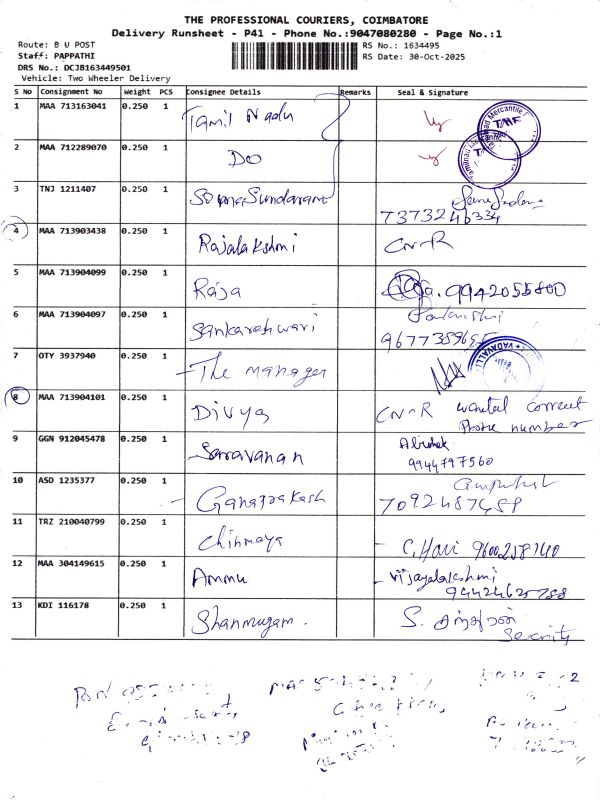 THE PROFESSIONAL COURIERS, COIMBATORE
Delivery Runsheet - P41 - Phone No.:9047080280 - Page No.:1
Route: B U POST
RS No.: 1634495
Staff: PAPPATHI
RS Date: 30-Oct-2025
DRS No.: DCJB163449501
Vehicle: Two Wheeler Delivery
S No Consignment No Weight PCS Consignee Details Remarks Seal & Signature
1 MAA 713163041 0.250 1 Tamil Nadu
2 MAA 712289070 0.250 1 Do
3 TNJ 1211407 0.250 1 SomaSundaram
7373246334
4 MAA 713903438 0.250 1 Rajalakshmi CNR
5 MAA 713904099 0.250 1 Raja 9942055800
6 MAA 713904097 0.250 1 Sankareshwari
7 OTY 3937940 0.250 1 The manager
8 MAA 713904101 0.250 1 Divya CNR wanted correct
Phone number
9 GGN 912045478 0.250 1 Saravanan Abishek
9944797560
10 ASD 1235377 0.250 1 Ganaprakash
7092487458
11 TRZ 210040799 0.250 1 Chinmaya C. Hari 9600258140
12 MAA 304149615 0.250 1 Ammu Vijayalakshmi
13 KDI 116178 0.250 1 Shanmugam. S.
Security